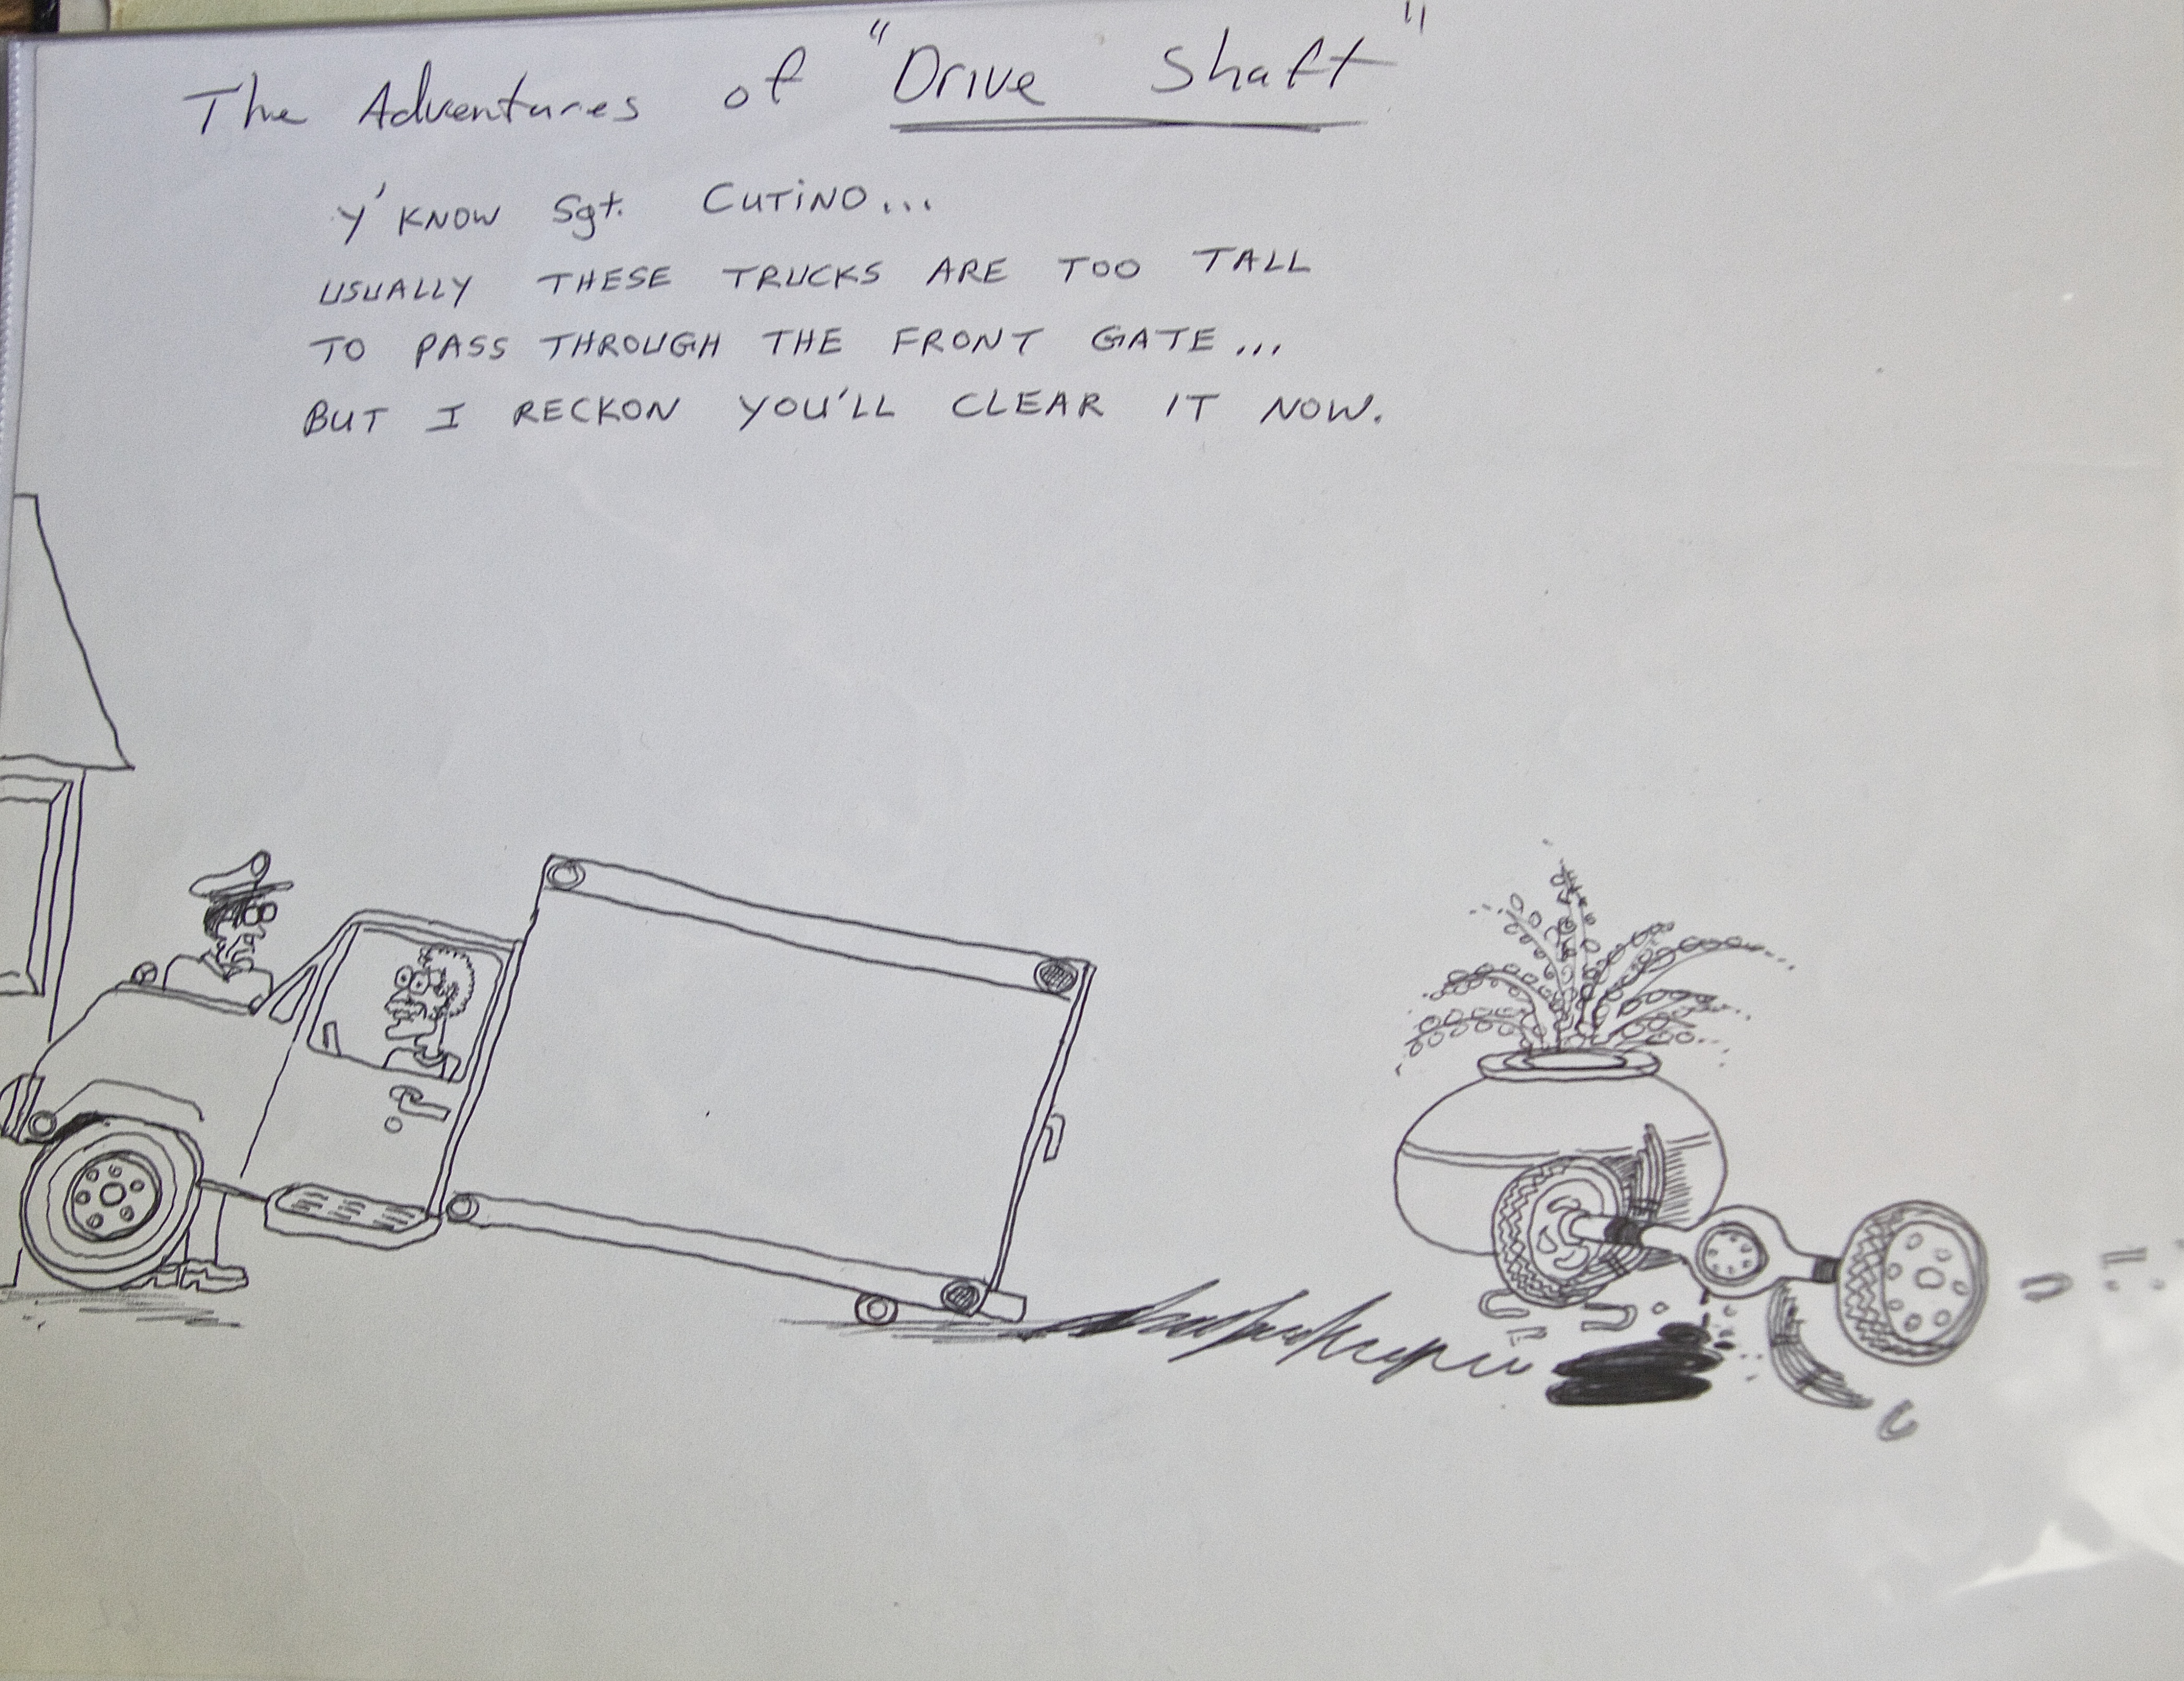 The Adventures of "Drive Shaft"
Y'KNOW Sgt. CUTiNO...
USUALLY THESE TRUCKS ARE TOO TALL
TO PASS THROUGH THE FRONT GATE...
BUT I RECKON YOU'LL CLEAR IT NOW.